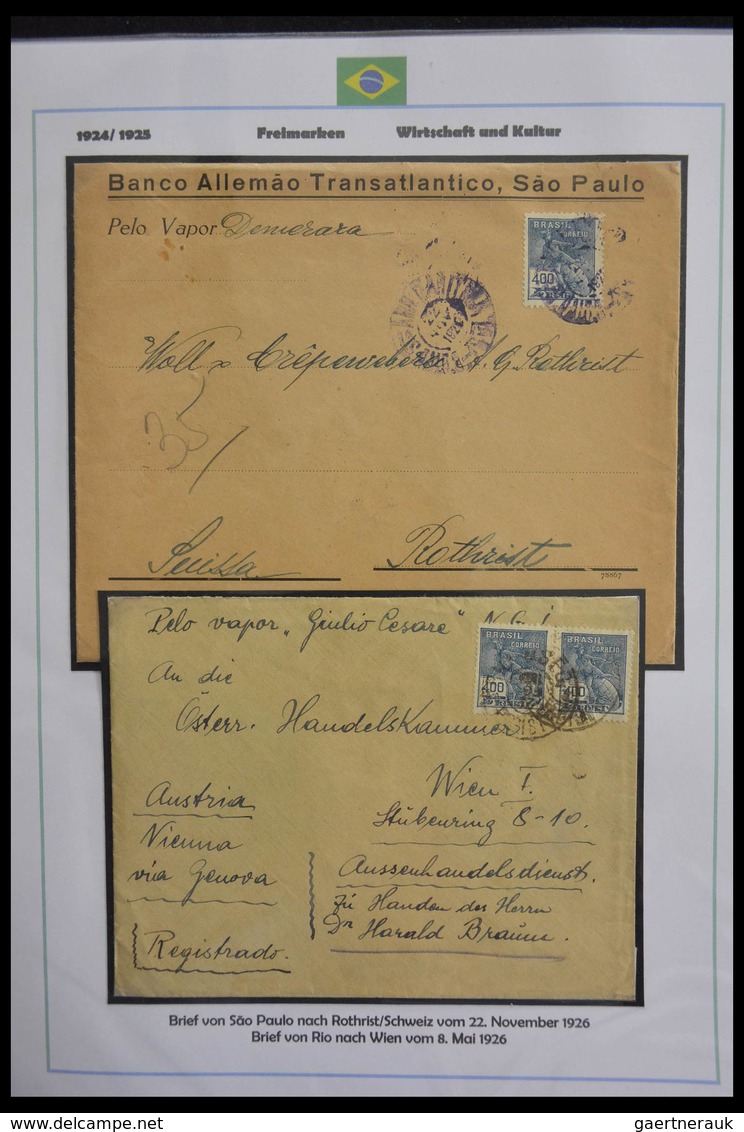 1924/ 1925 Freimarken Wirtschaft und Kultur
Banco Allemão Transatlantico, São Paulo
Pelo Vapor Demerara
BRASIL
CORREIO
400
Woll & Crêpeweberei A. G. Rothrist
35
Suissa
Rothrist
78867
Pelo vapor „Giulio Cesare" N. G. I.
BRASIL
CORREIO
400
BRASIL
CORREIO
400
An die
Österr. Handelskammer
Wien I.
Stubenring 8-10.
Austria
Vienna
via Genova
Registrado.
Aussenhandelsdienst.
zu Handen des Herrn
Dr Harald Braun.
Brief von São Paulo nach Rothrist/Schweiz vom 22. November 1926
Brief von Rio nach Wien vom 8. Mai 1926
gaertnerauk